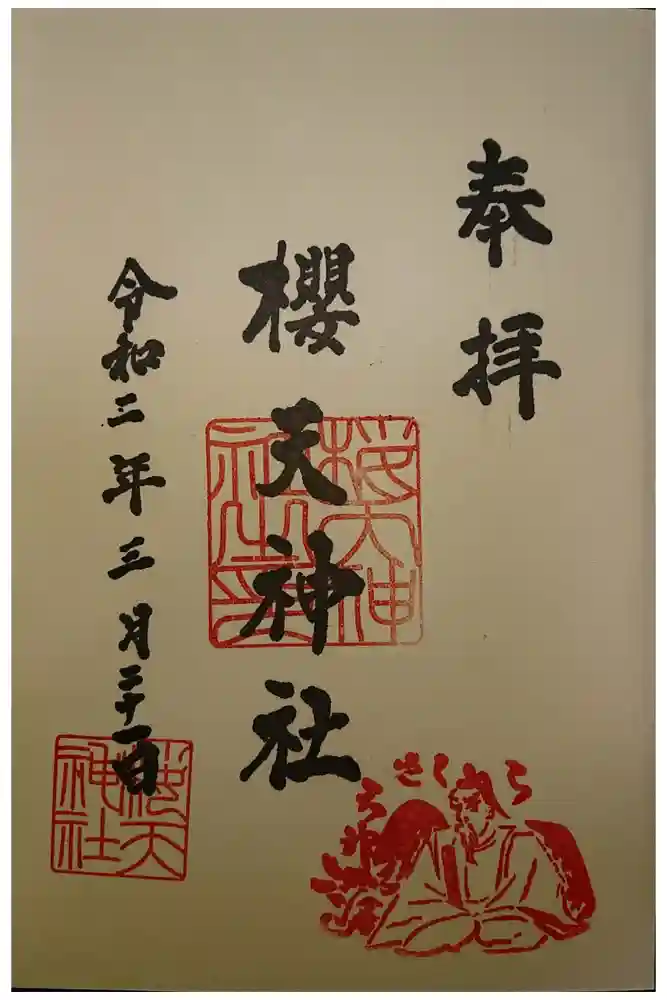 奉拝
櫻天神社
令和二年三月二十一日
桜天神社印
桜天神社
さくら
天神